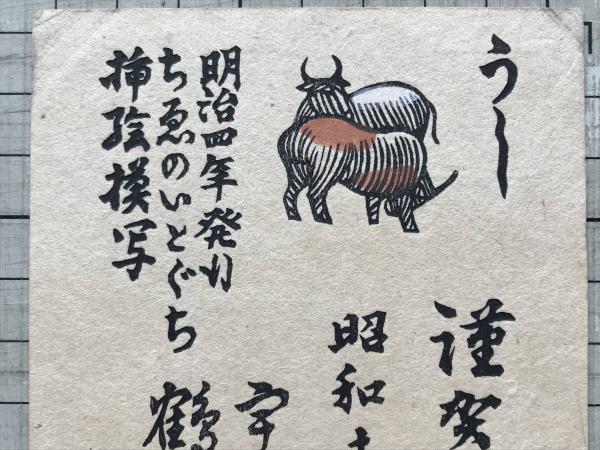 うし
謹賀
昭和
明治四年発刋
ちゑのいとぐち
挿絵模写
宇
鶴